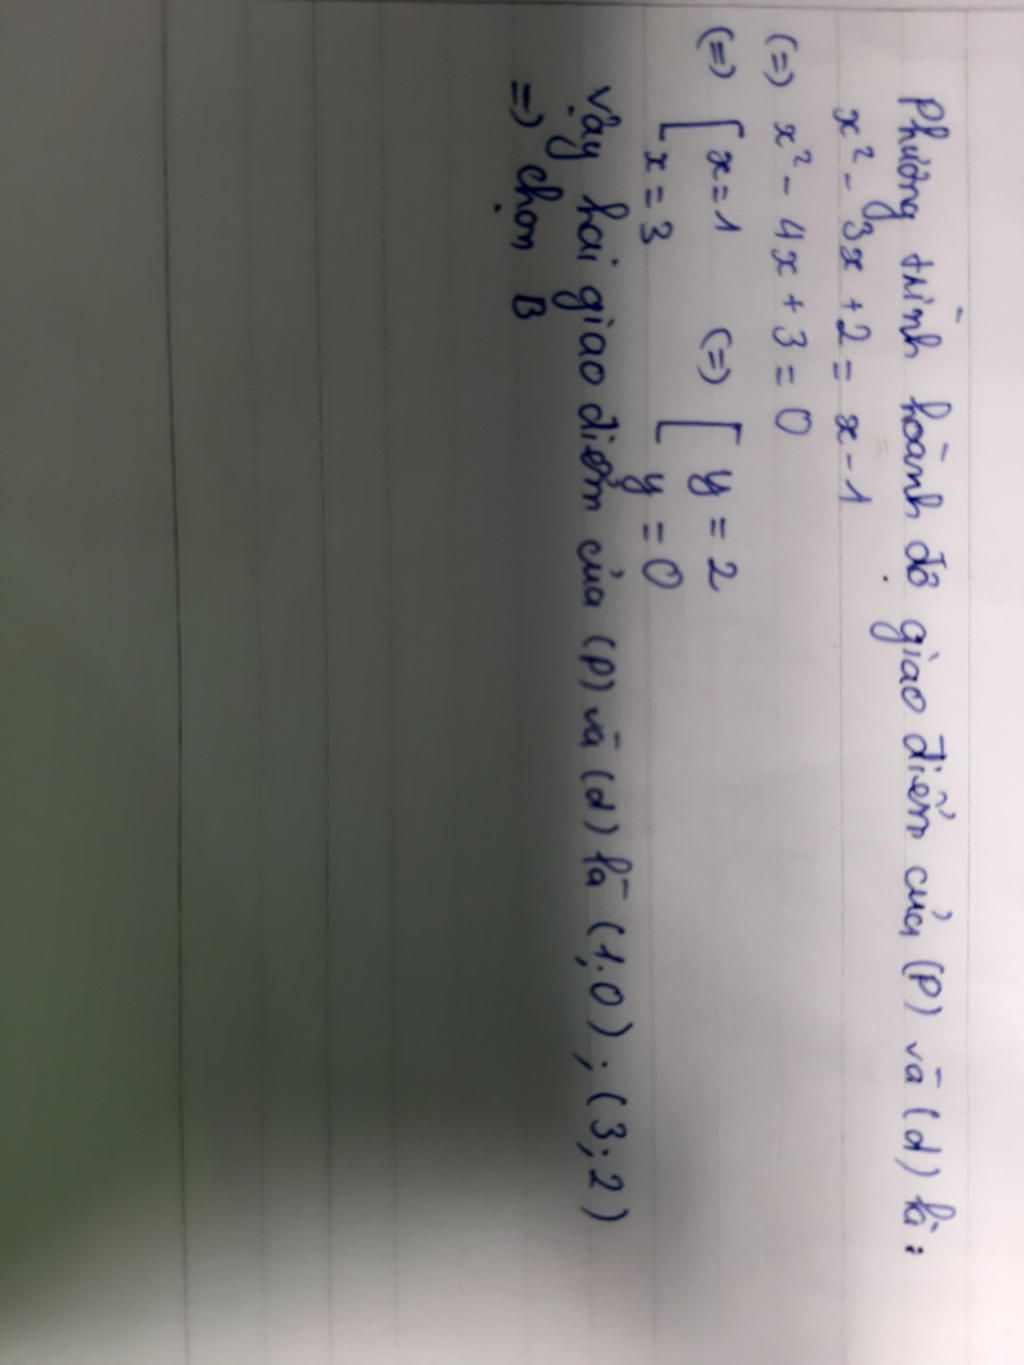 Phương trình hoành độ giao điểm của (P) và (d) là:
x² - 3x + 2 = x - 1
(=) x² - 4x + 3 = 0
(=) [ x = 1 (=) [ y = 2
x = 3 y = 0
Vậy hai giao điểm của (P) và (d) là (1;0); (3;2)
=) chọn B